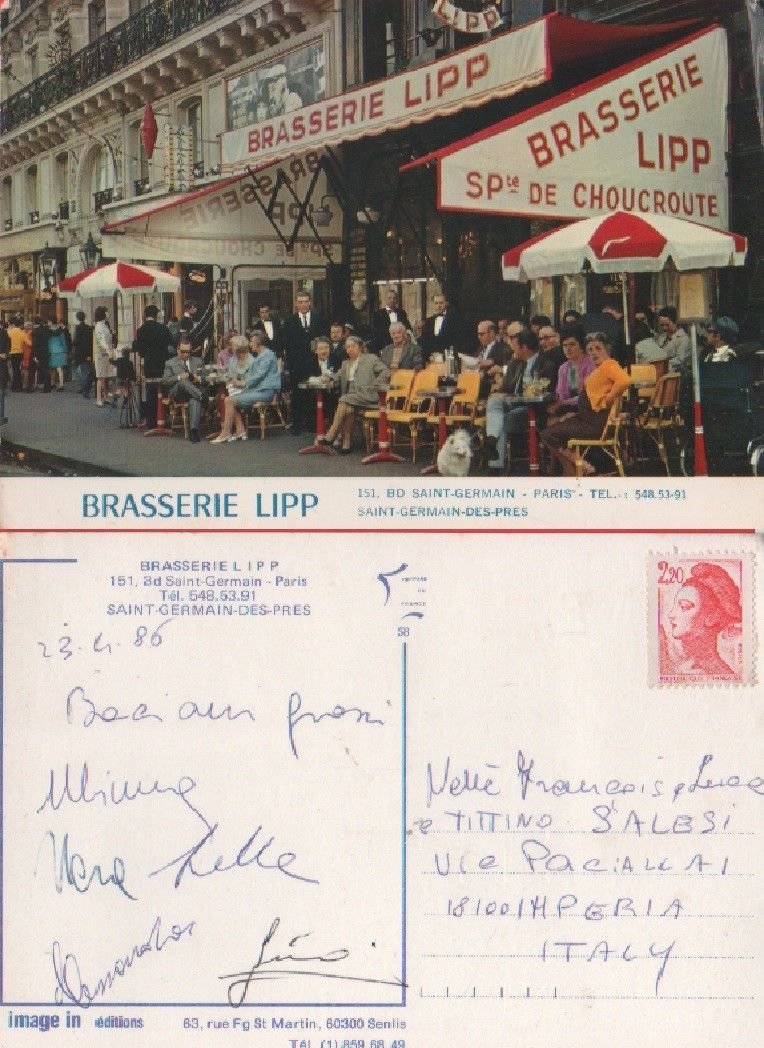 LIPP
BRASSERIE LIPP
BRASSERIE
LIPP
SPté DE CHOUCROUTE
BRASSERIE LIPP
151, BD SAINT-GERMAIN - PARIS - TEL. : 548.53-91
SAINT-GERMAIN-DES-PRES
BRASSERIE LIPP
151, Bd Saint-Germain - Paris
Tél. 548.53.91
SAINT-GERMAIN-DES-PRES
58
2,20
23.4.86
Baciani grossi
Mimma
Vera Lella
Gino
François e Luca
e TITTINO S'ALESI
Via PACIALLAI
18100 IMPERIA
ITALY
image in éditions 63, rue Fg St Martin, 60300 Senlis
Tél. (1) 859 68 49